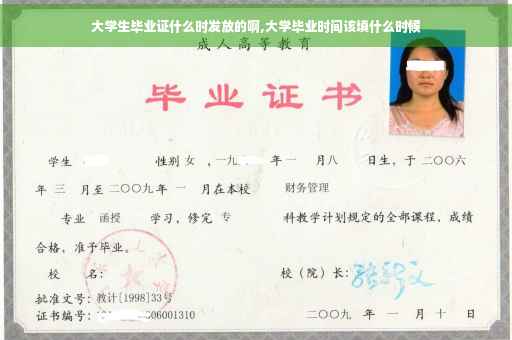 大学生毕业证什么时发放的啊,大学毕业时间该填什么时候
成人高等教育
毕业证书
学生 性别 女 ,一九 年 一 月 八 日生，于 二〇〇六
年 三 月至 二〇〇九 年 一 月在本校 财务管理
专业 函授 学习，修完 专 科教学计划规定的全部课程，成绩
合格，准予毕业。
校 名： 校（院）长：
批准文号：教计[1998]33号
证书编号： 06001310 二〇〇九 年 一 月 十 日